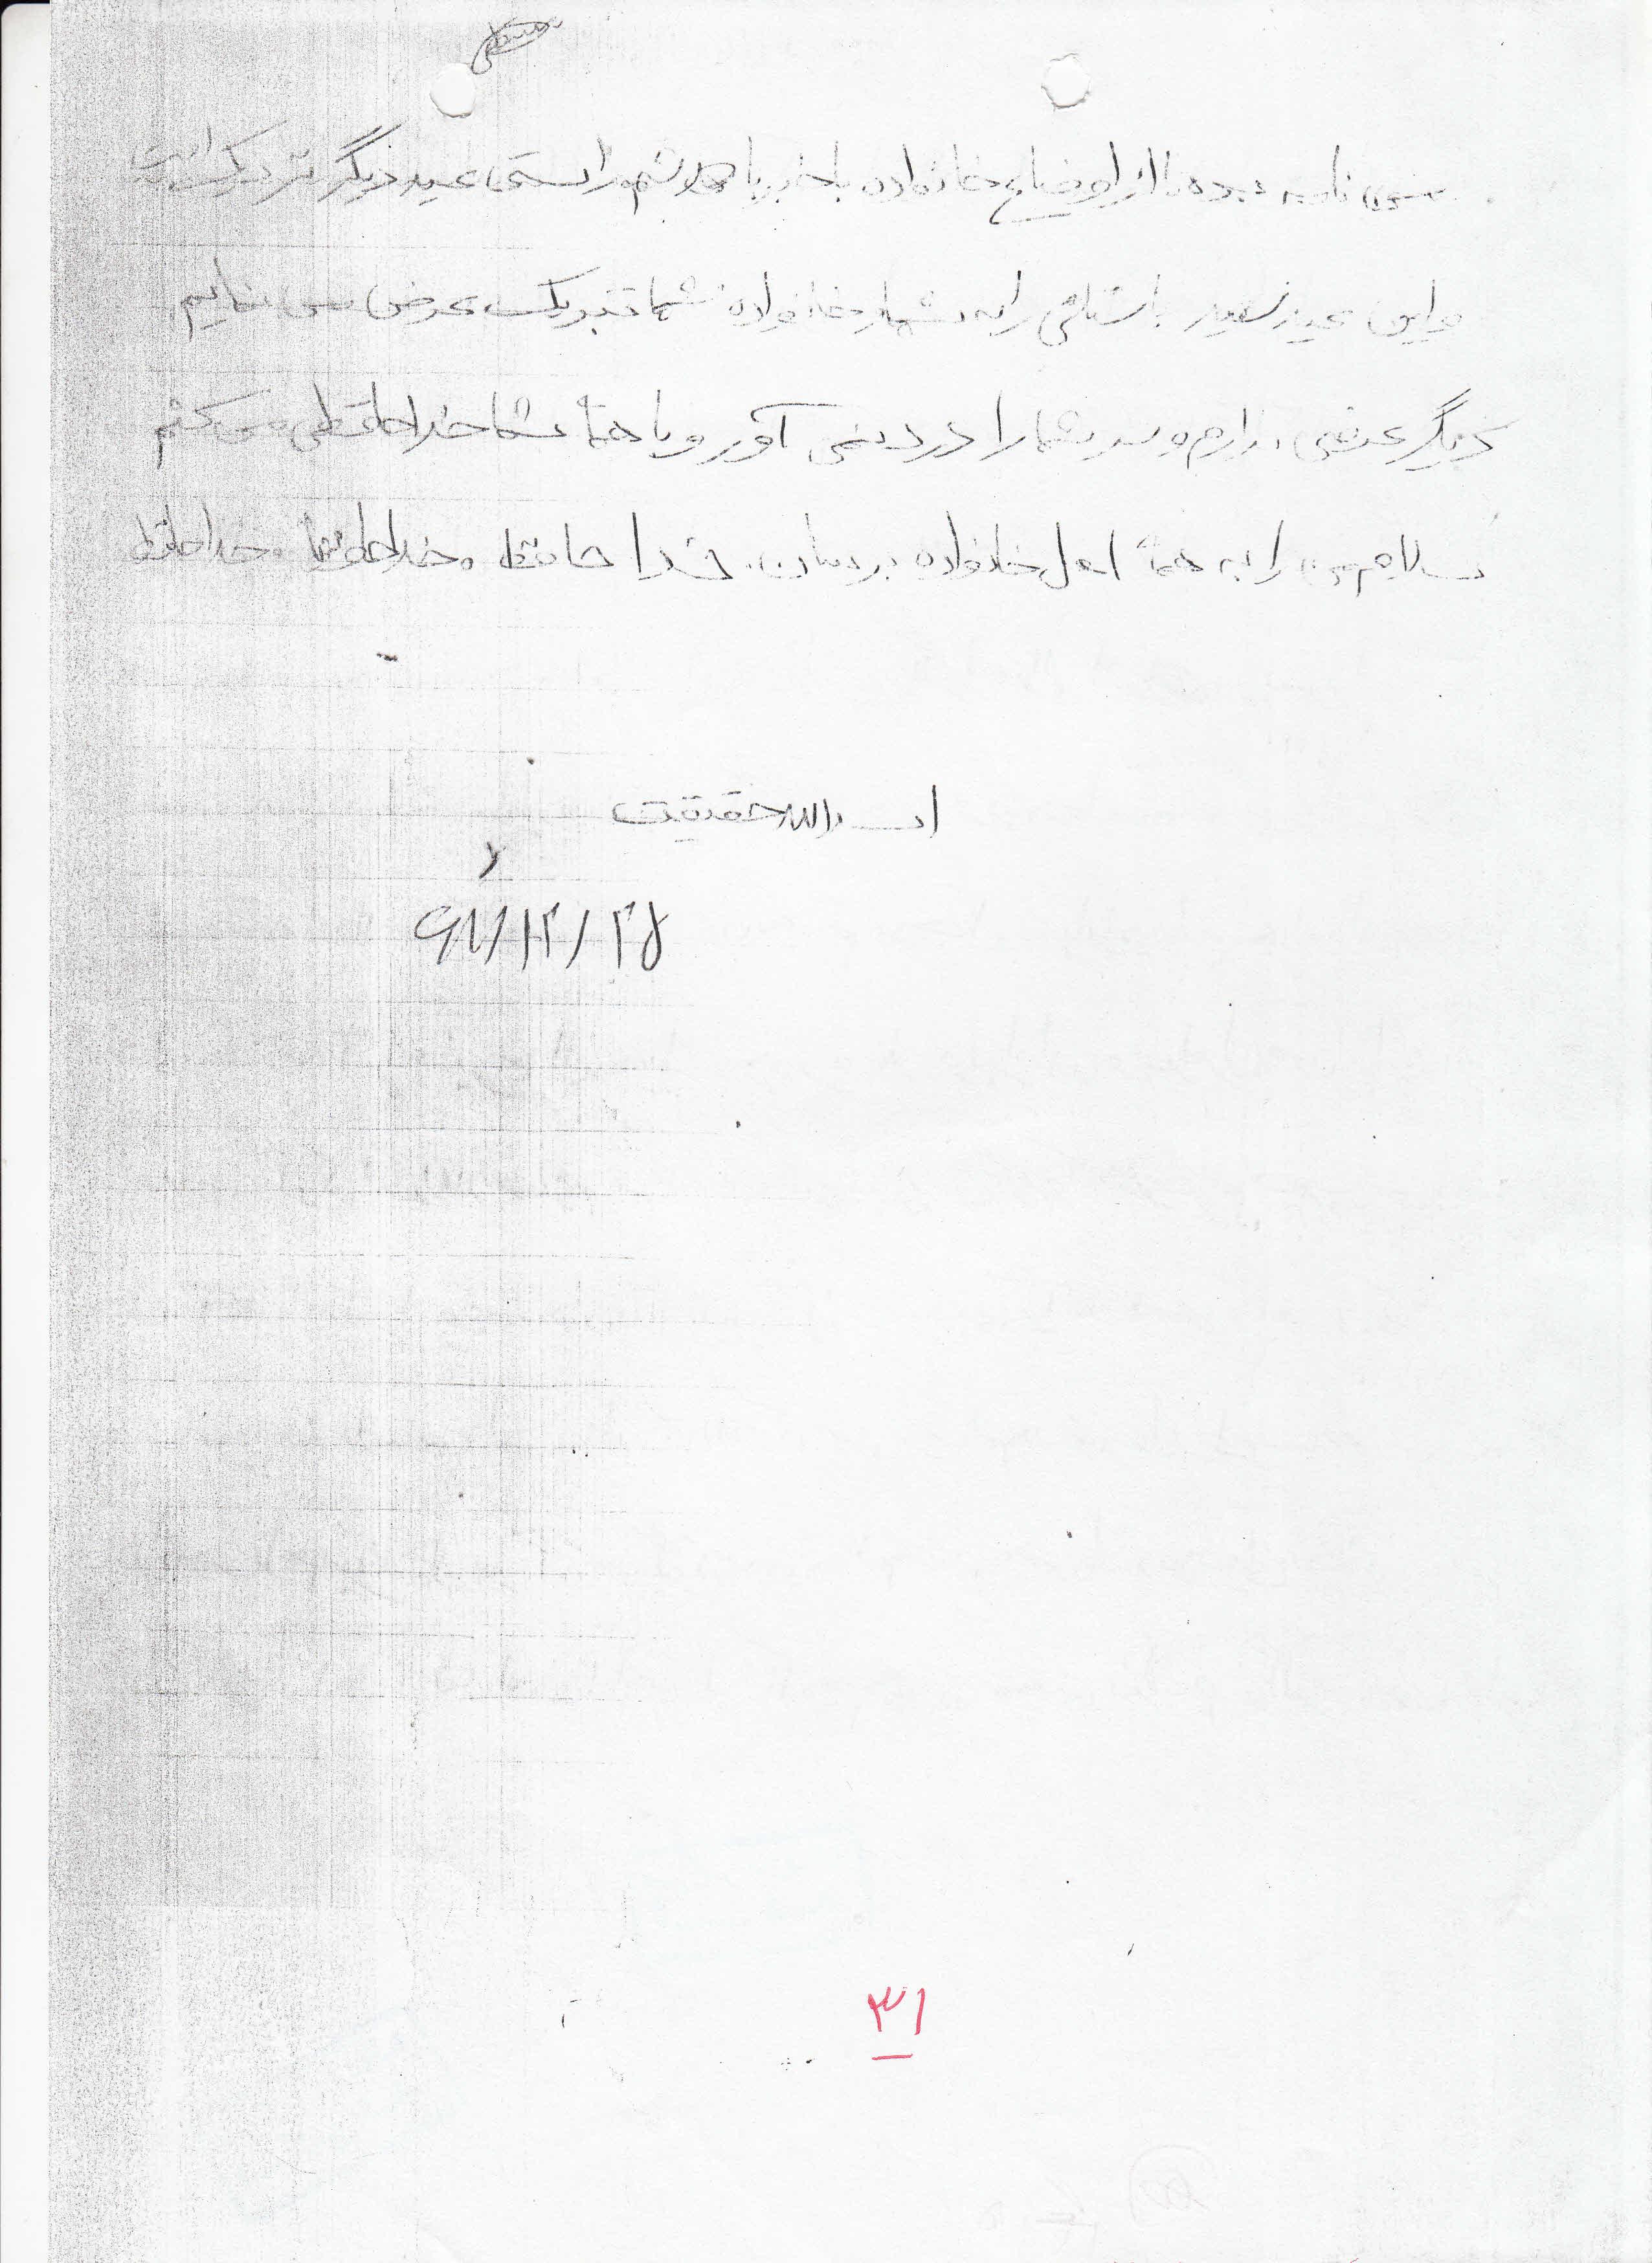 من نامه بده تا از اوضاع خانواده باخبر باشم راستی عید دیگر نزدیک است
و این عید سعید باستانی را به شما و خانواده شما تبریک عرض می نمایم
دیگر عرضی ندارم و سر شما را درد نمی آورم و با همهٔ شما خداحافظی می کنم
سلام من را به همهٔ اهل خانواده برسان. خدا حافظ و خداحافظ
اسدالله حقیقت
۶۷/۱۲/۲۵
۳۱